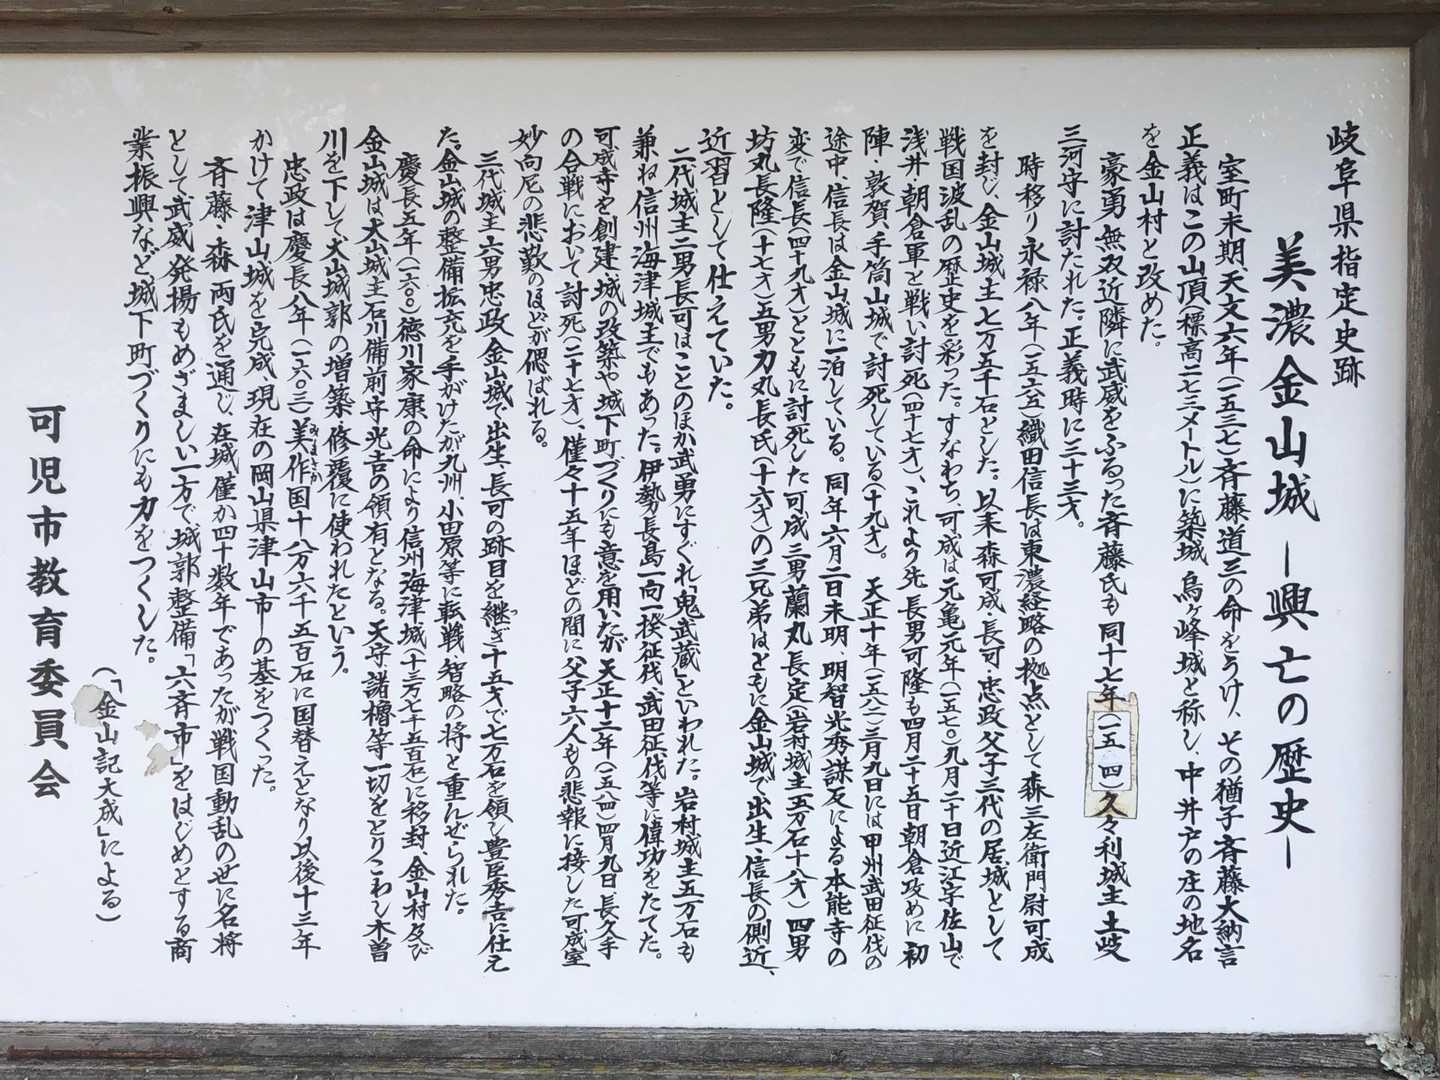 岐阜県指定史跡
美濃金山城 ―興亡の歴史―
室町末期、天文六年(一五三七)斉藤道三の命をうけ、その猶子斉藤大納言
正義はこの山頂(標高二七三メートル)に築城 烏ヶ峰城と称し、中井戸の庄の地名
を金山村と改めた。
豪勇無双近隣に武威をふるった斉藤氏も同十七年(一五四)久々利城主土岐
三河守に討たれた。正義時に三十三才。
時移り永禄八年(一五六五)織田信長は東濃経略の拠点として森三左衛門尉可成
を封じ、金山城主七万五千石とした。以来森可成・長可・忠政父子三代の居城として
戦国波乱の歴史を彩った。すなわち、可成は元亀元年(一五七〇)九月二十日近江宇佐山で
浅井・朝倉軍と戦い討死(四十七才)、これより先 長男可隆も四月二十五日朝倉攻めに初
陣・敦賀、手筒山城で討死している(十九才)。 天正十年(一五八二)三月九日には甲州武田征伐の
途中、信長は金山城に一泊している。同年六月二日未明、明智光秀謀反による本能寺の
変で信長(四十九才)とともに討死した可成三男蘭丸長定(岩村城主五万石十八才)四男
坊丸長隆(十七才)五男力丸長氏(十六才)の三兄弟はともに金山城で出生、信長の側近、
近習として仕えていた。
二代城主二男長可はことのほか武勇にすぐれ「鬼武蔵」といわれた。岩村城主五万石も
兼ね信州海津城主でもあった。伊勢長島一向一揆征伐、武田征伐等に偉功をたてた。
可成寺を創建、城の改築や城下町づくりにも意を用いたが天正十二年(一五八四)四月九日、長久手
の合戦において討死(二十七才)、僅々十五年ほどの間に父子六人もの悲報に接した可成室
妙向尼の悲歎のほどが偲ばれる。
三代城主六男忠政金山城で出生、長可の跡目を継ぎ十五才で七万石を領し豊臣秀吉に仕え
た。金山城の整備拡充を手がけたが九州、小田原等に転戦、智略の将と重んぜられた。
慶長五年(一六〇〇)徳川家康の命により信州海津城(十三万七千五百石)に移封、金山村及び
金山城は犬山城主石川備前守光吉の領有となる。天守諸櫓等一切をとりこわし木曽
川を下して犬山城郭の増築、修覆に使われたという。
忠政は慶長八年(一六〇三)美作国十八万六千五百石に国替えとなり以後十三年
かけて津山城を完成、現在の岡山県津山市一の基をつくった。
斉藤・森両氏を通じ、在城僅か四十数年であったが戦国動乱の世に名将
として武威発揚もめざましい一方で城郭整備「六斉市」をはじめとする商
業振興など城下町づくりにも力をつくした。
(「金山記大成」による)
可児市教育委員会